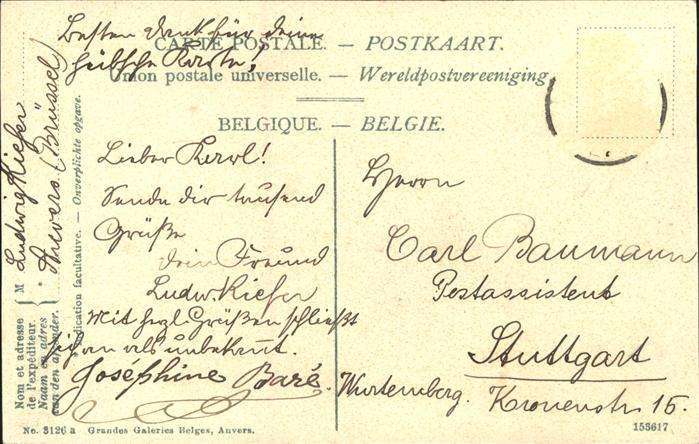 Besten Dank für deine
hübsche Karte!
CARTE POSTALE. — POSTKAART.
Union postale universelle. — Wereldpostvereeniging
BELGIQUE. — BELGIE.
Nom et adresse
de l'expéditeur.
Naam en adres
van den afzender.
M Ludwig Kiefer
Anvers. (Brüssel)
Indication facultative. — Onverplichte opgave.
Lieber Karl!
Sende dir tausend
Grüße
dein Freund
Ludw. Kiefer
Mit hrzl. Grüßen schließt
sich an als unbekannt.
Josephine Baré.
Herrn
Carl Baumann
Postassistent
Stuttgart
Wurtemberg. Kronenstr 15.
No. 3126 a Grandes Galeries Belges, Anvers.
153617